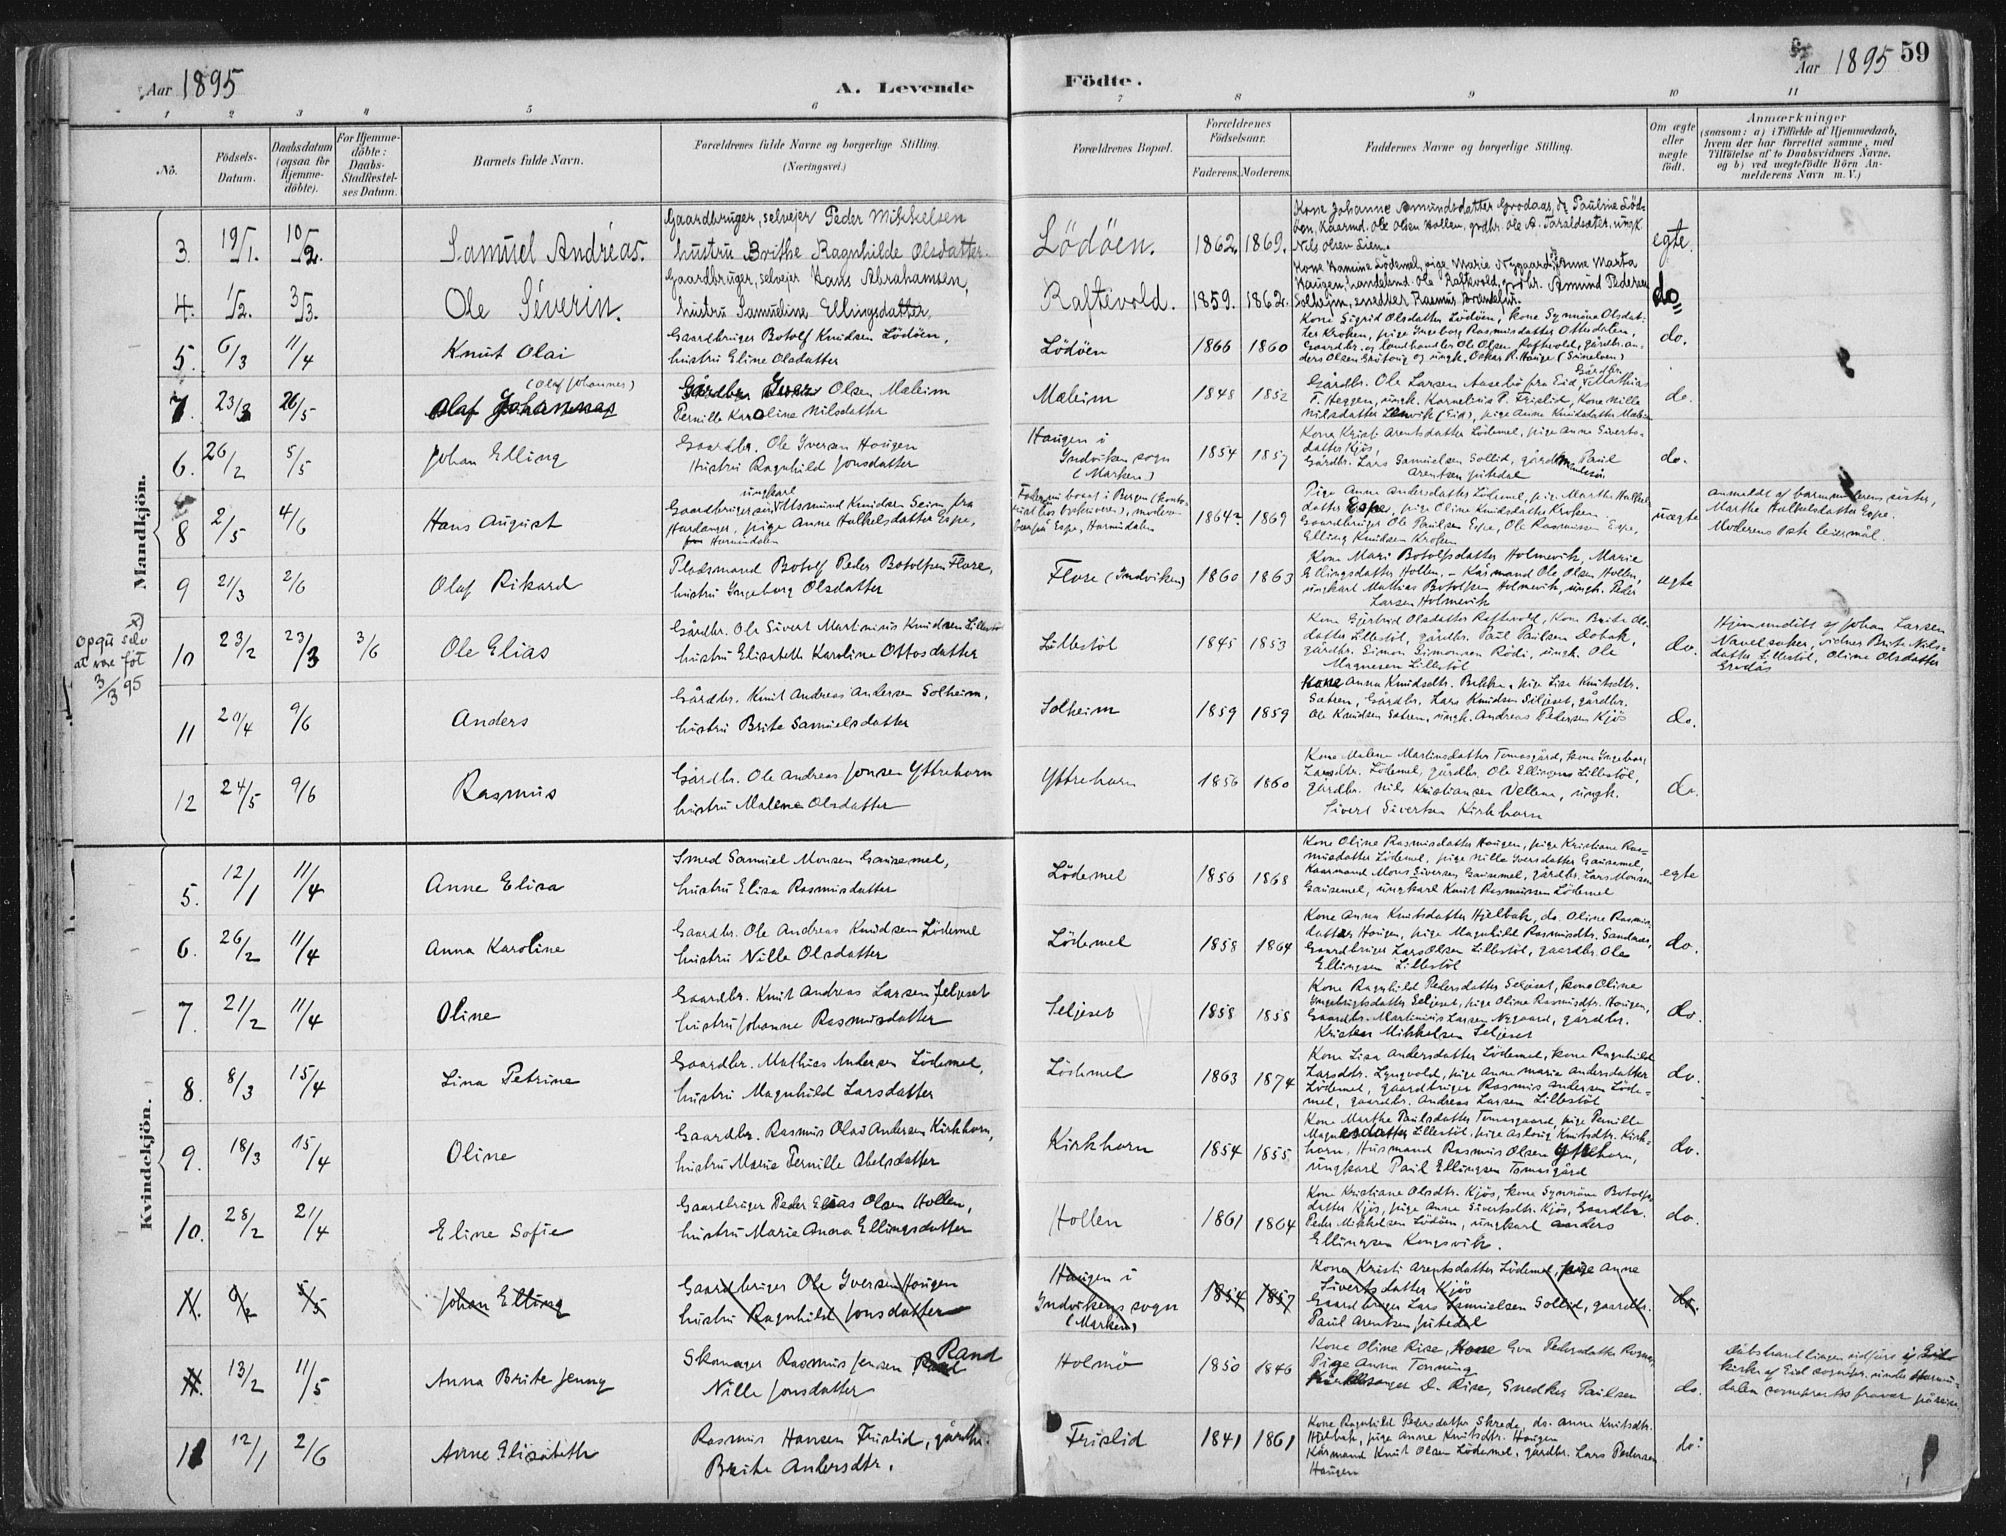 Aar 1895
A. Levende
Födte.
Aar 1895 59
1 2 3 4 5 6 7 8 9 10 11
No.
Födsels-
Datum.
Daabsdatum
(ogsaa for
Hjemme-
döbte).
For Hjemme-
döbte:
Daabs-
Stadfæstel-
ses Datum.
Barnets fulde Navn.
Forældrenes fulde Navne og borgerlige Stilling.
(Næringsvei.)
Forældrenes Bopæl.
Forældrenes
Födselsaar.
Faderens. Moderens.
Faddernes Navne og borgerlige Stilling.
Om ægte
eller
uægte
födt.
Anmærkninger
(saasom: a) i Tilfælde af Hjemmedaab,
hvem der har forrettet samme, med
Tilföielse af to Daabsvidners Navne,
og b) ved uægtefödte Börn An-
melderens Navn m. V.)
Mandkjön.
3. 19/1. 10/2. Samuel Andreas.
Gaardbruger, selveier Peder Mikkelsen
hustru Brithe Ragnhilde Olsdatter.
Lödöen. 1862. 1869.
Kone Johanne Amundsdatter Grodaas, do Pauline Löd-
öen, Kaarmd. Ole Olsen Hollen, grdbr. Ole A. Taraldsæter, ungk.
Nils Olsen Lien.
egte.
4. 1/2. 3/3. Ole Severin.
Gaardbruger, selveier Hans Abrahamsen,
hustru Samueline Ellingsdatter,
Raftevold. 1859. 1862.
Kone Hamine Lödemel, pige Marie Nygaard, Anne Marta
Haugen, handelsmd. Ole Raftevold, grdbr. Amund Pedersen
Solheim, snedker Rasmus
do
5. 6/3 11/4 Knut Olai
Gaardbruger Botolf Knudsen Lödöen,
hustru Eline Olsdatter
Lödöen 1866 1860
Kone Sigrid Olsdatter Lödöen, kone Synnöve Olsdat-
ter Kroken, pige Ingeborg Rasmusdatter Ottedalen,
Gaardbr. og landhandler Ole Olsen Raftvold, gårdbr. An-
ders Olsen og ungk. Oskar R. Hauge
do.
7. 23/3 26/5 (Olaf Johannes)
Olaf Johannes
Gårdbr. Iver Olsen Maleim
Pernille Karoline Nilsdatter
Maleim 1848 1852
Gårdbr. Ole Larsen Aasebö fra Eid, Gårdbr. Mathias
T. Heggen, ungk. Kornelius P. Frislid, Kone Nille
Nilsdatter (Eid), pige Anne Knudsdatter Maleim
do.
6. 26/2 5/5 Johan Elling
Gaardbr. Ole Iversen Haugen
Hustru Ragnhild Jonsdatter
Haugen i
Indviken sogn
(Marken)
1854 1857
Kone Kristi Arentsdatter Lödemel, pige Anne Siverts-
datter Kjös,
Gårdbr. Lars Samuelsen Sollid, gårdbr. Paul
Arentsen
do.
8 2/5 4/6 Hans August
ungkarl
Gaardbrugersön, Asmund Knudsen Seim fra
Hardanger, pige Anne Halkelsdatter Espe,
fra Hornindalen
1864? 1869
Pige Anne Andersdatter Lödemel, pige Marthe Halkels-
datter Espe, pige Oline Knudsdatter Kroken
Gaardbruger Ole Paulsen Espe, Ole Rasmussen Espe,
Elling Knudsen Kroken
uægte
Anmeldt af barnemoderens sister,
Marthe Halkelsdatter Espe.
Moderens 1ste leiermål.
9 21/3 2/6 Olaf Rikard
Pladsmand Botolf Peder Botolfsen Flore,
hustru Ingeborg Olsdatter
Flore (Indviken) 1860 1863
Kone Mari Botolfsdatter Holmevik, Marie
Ellingsdatter Hollen, - Kårmand Ole Olsen Hollen,
ungkarl Mathias Botolfsen Holmevik, ungk. Peder
Larsen Holmevik
ægte
x)
Opgir selv
at være föt
3/3 95
10 23/2 23/3 3/6 Ole Elias
Gårdbr. Ole Sivert Martinius Knudsen Lillestöl
hustru Elisabeth Karoline Ottosdatter
Lillestöl 1845 1853
Kone Gjertrud Olsdatter Raftevold, Kone Brite Ols-
datter Lillestöl, gårdbr. Paul Paulsen Dobak,
gårdbr. Simon Simonsen Rödi, ungk. Ole
Magnesen Lillestöl
do.
Hjemmedöbt af Johan Larsen
Navelsaker, vidner Brite Nils-
datter Lillestöl, Oline Olsdatter
Grodås
11 20/4 9/6 Anders
Gårdbr. Knut Andreas Andersen Solheim,
hustru Brite Samuelsdatter
Solheim 1859 1859
Kone Anna Knudsdtr. Bekke, pige Lise Knutsdtr.
Sætren, Gårdbr. Lars Knudsen Seljeset, gårdbr.
Ole Knudsen Sætren, ungk. Andreas Pedersen Kjös
do.
12 24/5 9/6 Rasmus
Gårdbr. Ole Andreas Jonsen Yttrehorn
hustru Malene Olsdatter
Yttrehorn 1856 1860
Kone Malene Martinsdatter Tomasgård, kone Ingeborg
Larsdtr. Lödemel, gårdbr. Ole Ellingsen Lillestöl,
gårdbr. Nils Kristiansen Vellene, ungk.
Sivert Sivertsen Kirkhorn
do.
Kvindekjön.
5. 12/1 11/4 Anne Elisa
Smed Samuel Monsen Gausemel,
hustru Elisa Rasmusdatter
Lödemel 1856 1868
Kone Oline Rasmusdatter Haugen, pige Kristiane Ras-
musdatter Lödemel, pige Nille Iversdatter Gausemel,
Kaarmand Mons Siversen Gausemel, gårdbr. Lars Monsen
Gausemel, ungkarl Knut Rasmussen Lödemel
egte
6. 26/2 11/4 Anna Karoline
Gaardbr. Ole Andreas Knudsen Lödemel
hustru Nille Olsdatter
Lödemel 1858 1864
Kone Anna Knutsdatter Hjelbak, do. Oline Rasmus-
datter Haugen, pige Magnhild Rasmusdtr. Sandnæs,
Gaardbruger Lars Olsen Lillestöl, gaardbr. Ole
Ellingsen Lillestöl
do.
7. 21/2 11/4 Oline
Gaardbr. Knut Andreas Larsen Seljeset
hustru Johanne Rasmusdatter
Seljeset 1858 1858
Kone Ragnhild Pedersdatter Seljeset, kone Oline
Ingebrigtsdatter Seljeset, pige Oline Rasmusdtr. Haugen,
Gaardbr. Martinius Larsen Nygaard, gårdbr.
Kristen Mikkelsen Seljeset
do.
8. 8/3 15/4 Lina Petrine
Gaardbr. Mathias Andersen Lödemel,
hustru Magnhild Larsdatter
Lödemel 1863 1874
Kone Lisa Andersdatter Lödemel, kone Ragnhild
Larsdtr. Lyngvold, pige Anne Marie Andersdatter
Lödemel, gaardbruger Rasmus Andersen Löde-
mel, gaardbr. Andreas Larsen Lillestöl
do.
9. 18/3 15/4 Oline
Gaardbr. Rasmus Olai Andersen Kirkhorn,
hustru Marie Pernille Abelsdatter
Kirkhorn 1854 1855
Kone Marthe Paulsdatter Tomasgaard, pige Pernille
Magnesdatter Lillestöl, pige Aslaug Knutsdtr. Kirk-
horn, Husmand Rasmus Olsen Yttrehorn,
ungkarl Paul Ellingsen Tomasgård
do.
10. 28/2 21/4 Eline Sofie
Gaardbruger Peder Elias Olsen Hollen,
hustru Marie Anna Ellingsdatter
Hollen 1861 1864
Kone Kristiane Olsdtr. Kjös, kone Synnöve Botolfs-
datter Kjös, pige Anne Sivertsdtr. Kjös, Gaardbr.
Peder Mikkelsen Lödöen, ungkarl Anders
Ellingsen Kongsvik.
do.
11. 5/5 Johan Elling
Gaardbruger Ole Iversen Haugen
hustru Ragnhild Jonsdatter
Haugen i
Indvikens sogn
(Marken)
1854 1857
Kone Kristi Arentsdatter Lödemel, pige Anne
Sivertsdatter Kjös
Gaardbruger Lars Samuelsen Sollid, gaardbr.
Paul Arentsen
do.
13/2 11/5 Anna Brite Jenny
Skomager Rasmus Jensen Rand
Nille Jonsdatter
Holmö 1850 1846
Kone Oline Rise, Kone Eva Pedersdatter
Pige Anna Tonning
D. Rise, Snedker Paulsen
do.
kirke af Eid sognepr. under Hornin-
dalen sogneprests fravær
11 12/1 2/6 Anne Elisabeth
Rasmus Hansen Frislid, gårdbr.
Brite Andersdtr.
Frislid 1841 1861
Kone Ragnhild Pedersdatter Skrede, do. Anne Knutsdtr.
Hjelbak, pige Anne Knutsdtr. Haugen
Kårmand Knut Olsen Lödemel, gårdbr. Lars Pedersen
Haugen
do.